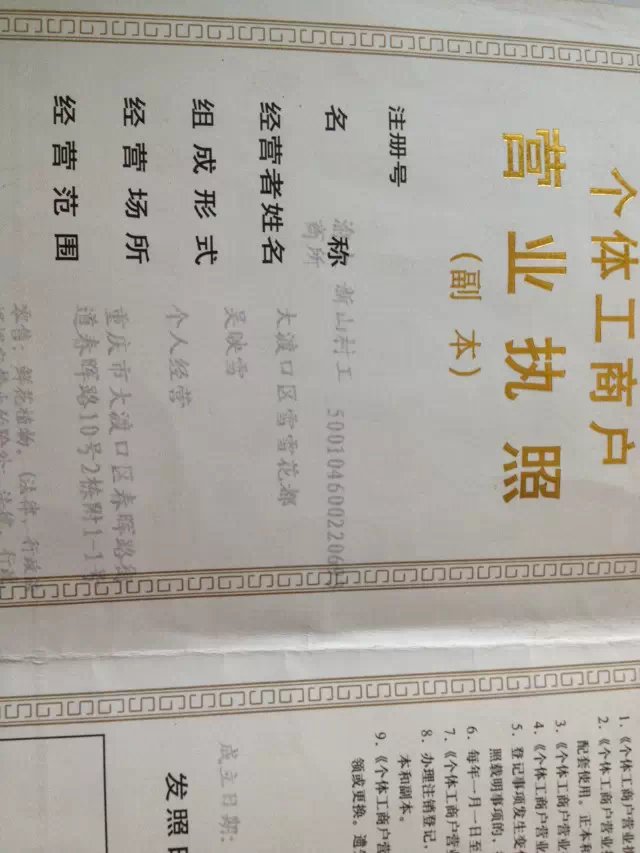 个体工商户
营业执照
（副本）
注册号
5001046002206
名称
大渡口区雪雪花都
经营者姓名
吴映雪
组成形式
个人经营
经营场所
重庆市大渡口区春晖路街
道春晖路10号2栋附1-1号
经营范围
零售：鲜花植物。（法律，行政法
新山村工
商所
1.《个体工商户营业
2.《个体工商户营业
配套使用。正本和
3.《个体工商户营业
4.《个体工商户营业
5. 登记事项发生变
照载明事项的，
6. 每年一月一日至
7.《个体工商户营业
8. 办理注销登记，
本和副本。
9.《个体工商户营
领或更换。遗
成立日期：
发照日